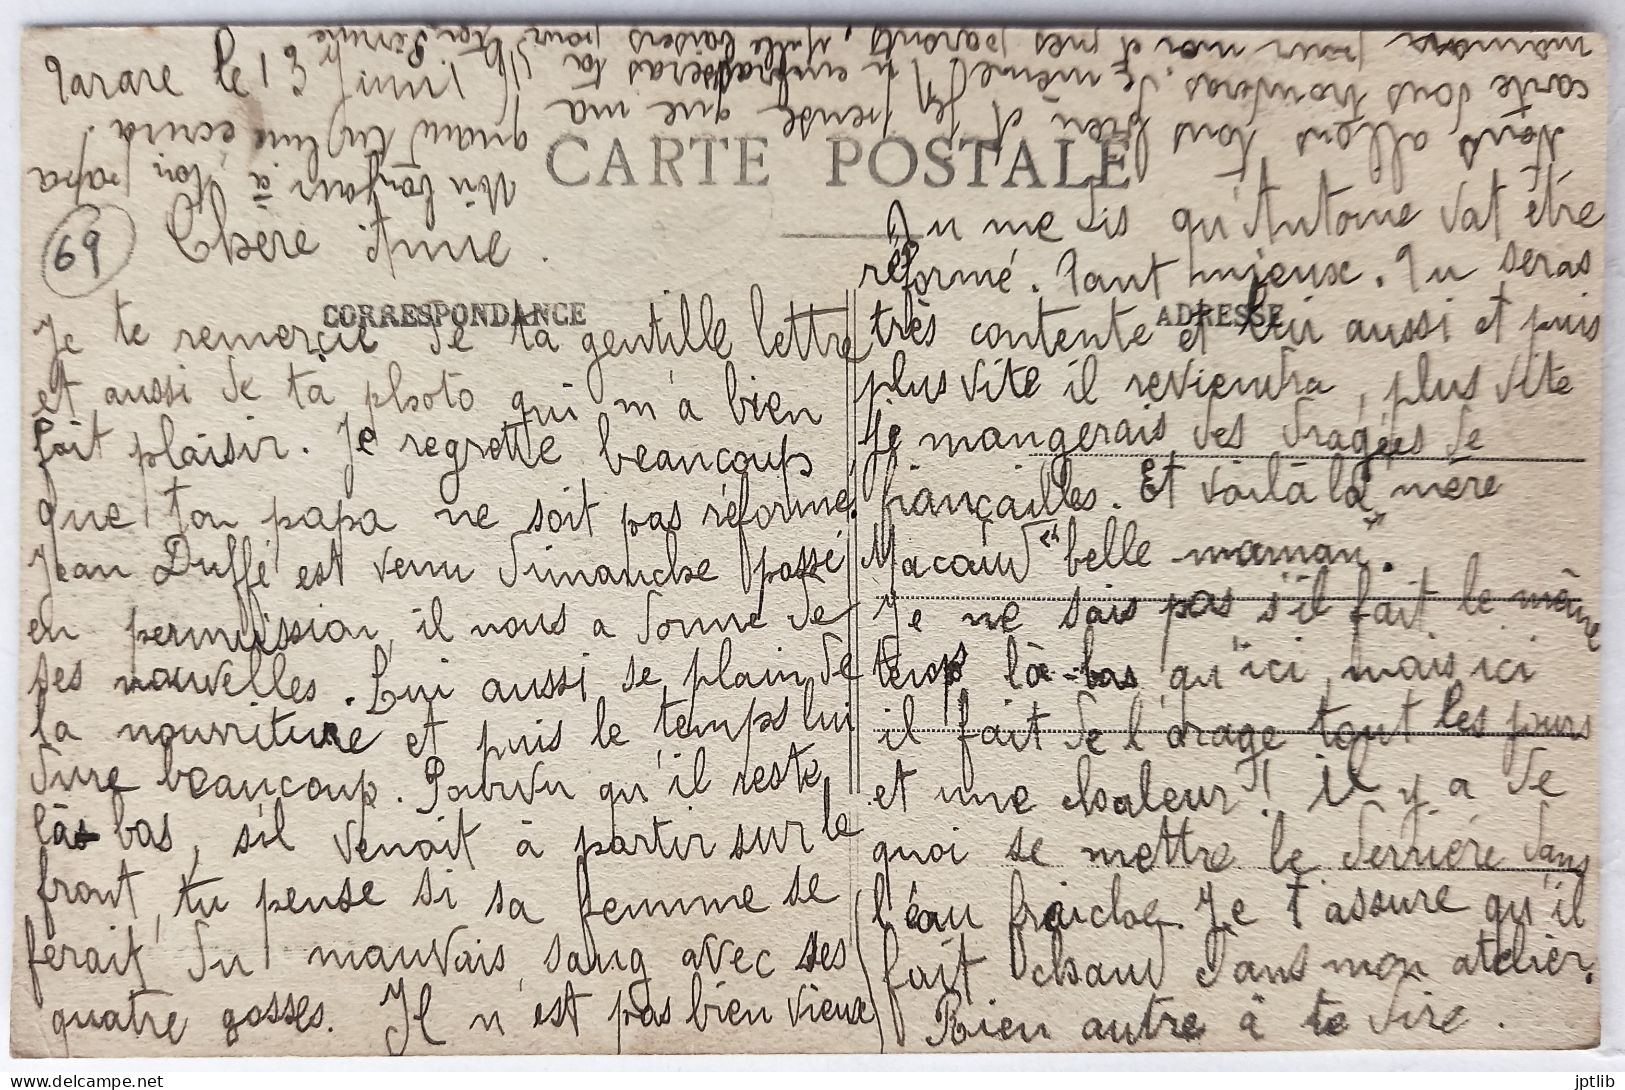 Tarare le 13 Juin
CARTE POSTALE
69
Chère Amie.
CORRESPONDANCE
Je te remercie de ta gentille lettre
et aussi de ta photo qui m'a bien
fait plaisir. Je regrette beaucoup
que ton papa ne soit pas réformé.
Jean Duffé est venu dimanche passé
en permission, il nous a donné de
ses nouvelles. Lui aussi se plain de
la nourriture et puis le temps lui
dure beaucoup. Pourvu qu'il reste
là bas, s'il venait à partir sur le
front, tu pense si sa femme se
ferait du mauvais sang avec ses
quatre gosses. Il n'est pas bien vieux
Tu me dis qu'Antoine vat être
réformé. Tant mieux. Tu seras
ADRESSE
très contente et lui aussi et puis
plus vite il reviendra, plus vite
je mangerais des dragées de
fiançailles. Et voilà la mère
Macaud "belle maman".
Je ne sais pas s'il fait le même
temps là-bas qu'ici, mais ici
il fait de l'orage tout les jours
et une chaleur! il y a de
quoi se mettre le derrière dans
l'eau fraiche. Je t'assure qu'il
fait chaud dans mon atelier.
Rien autre à te dire.
Nous allons tous bien et j'en pense que ma
carte vous trouveras de même. Tu embrasseras ta
maman pour moi et mes parents, mille baisers pour
quand tu lui écrira!
Un bonjour à ton papa
jptlib